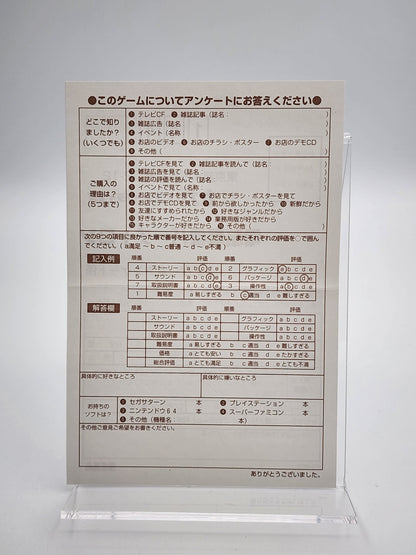 ●このゲームについてアンケートにお答えください●
どこで知り
ましたか？
（いくつでも）
❶ テレビCF ❷ 雑誌記事（誌名： ）
❸ 雑誌広告（誌名： ）
❹ イベント（名称： ）
❺ お店のビデオ ❻ お店のチラシ・ポスター ❼ お店のデモCD
❽ その他（ ）
ご購入の
理由は？
（5つまで）
❶ テレビCFを見て ❷ 雑誌記事を読んで（誌名： ）
❸ 雑誌広告を見て（誌名： ）
❹ 雑誌の評価を読んで（誌名： ）
❺ イベントで見て（名称： ）
❻ お店でビデオを見て ❼ お店でチラシ・ポスターを見て
❽ お店でデモCDを見て ❾ 前から欲しかったから ❿ 新鮮だから
⓫ 友達にすすめられたから ⓬ 好きなジャンルだから
⓭ 好きなメーカーだから ⓮ 業務用版が好きだから
⓯ キャラクターが好きだから ⓰ その他（ ）
次の9つの項目に良かった順で番号を記入してください。またそれぞれの評価を○で囲ん
でください。（a満足 ～ b ～ c普通 ～ d ～ e不満）
記入例 順番 評価 順番 評価
4 ストーリー a b c d e 2 グラフィック a b c d e
5 サウンド a b c d e 6 パッケージ a b c d e
7 取扱説明書 a b c d e 3 操作性 a b c d e
1 難易度 a 易しすぎる b c 適当 d e 難しすぎる
解答欄 順番 評価 順番 評価
ストーリー a b c d e グラフィック a b c d e
サウンド a b c d e パッケージ a b c d e
取扱説明書 a b c d e 操作性 a b c d e
難易度 a 易しすぎる b c 適当 d e 難しすぎる
価格 a とても安い b c 適当 d e たかすぎる
総合評価 a とても満足 b c 適当 d e とても不満
具体的に好きなところ 具体的に嫌いなところ
お持ちの
ソフトは？
❶ セガサターン 本 ❷ プレイステーション 本
❸ ニンテンドウ64 本 ❹ スーパーファミコン 本
❺ その他（機種名 本）
その他ご意見ご希望をお書きください。
ありがとうございました。